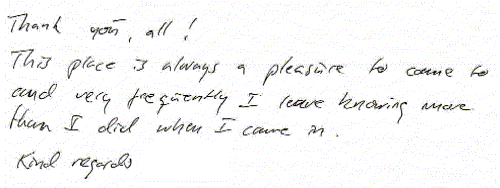 Thank you, all!
This place is always a pleasure to come to
and very frequently I leave knowing more
than I did when I came in.
Kind regards